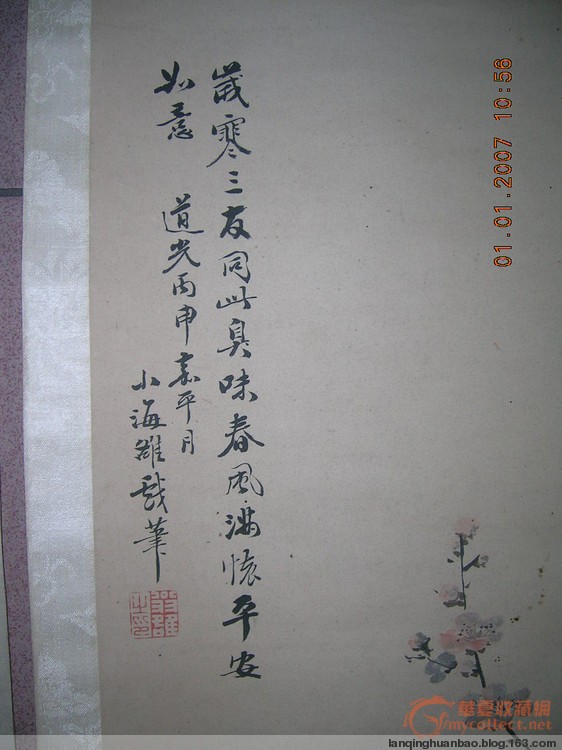 歲寒三友同此臭味春風滿懷平安
如意 道光丙申嘉平月
小海雒戲筆
01.01.2007 10:56
華夏收藏網
mycollect.net
lanqinghuanbao.blog.163.com